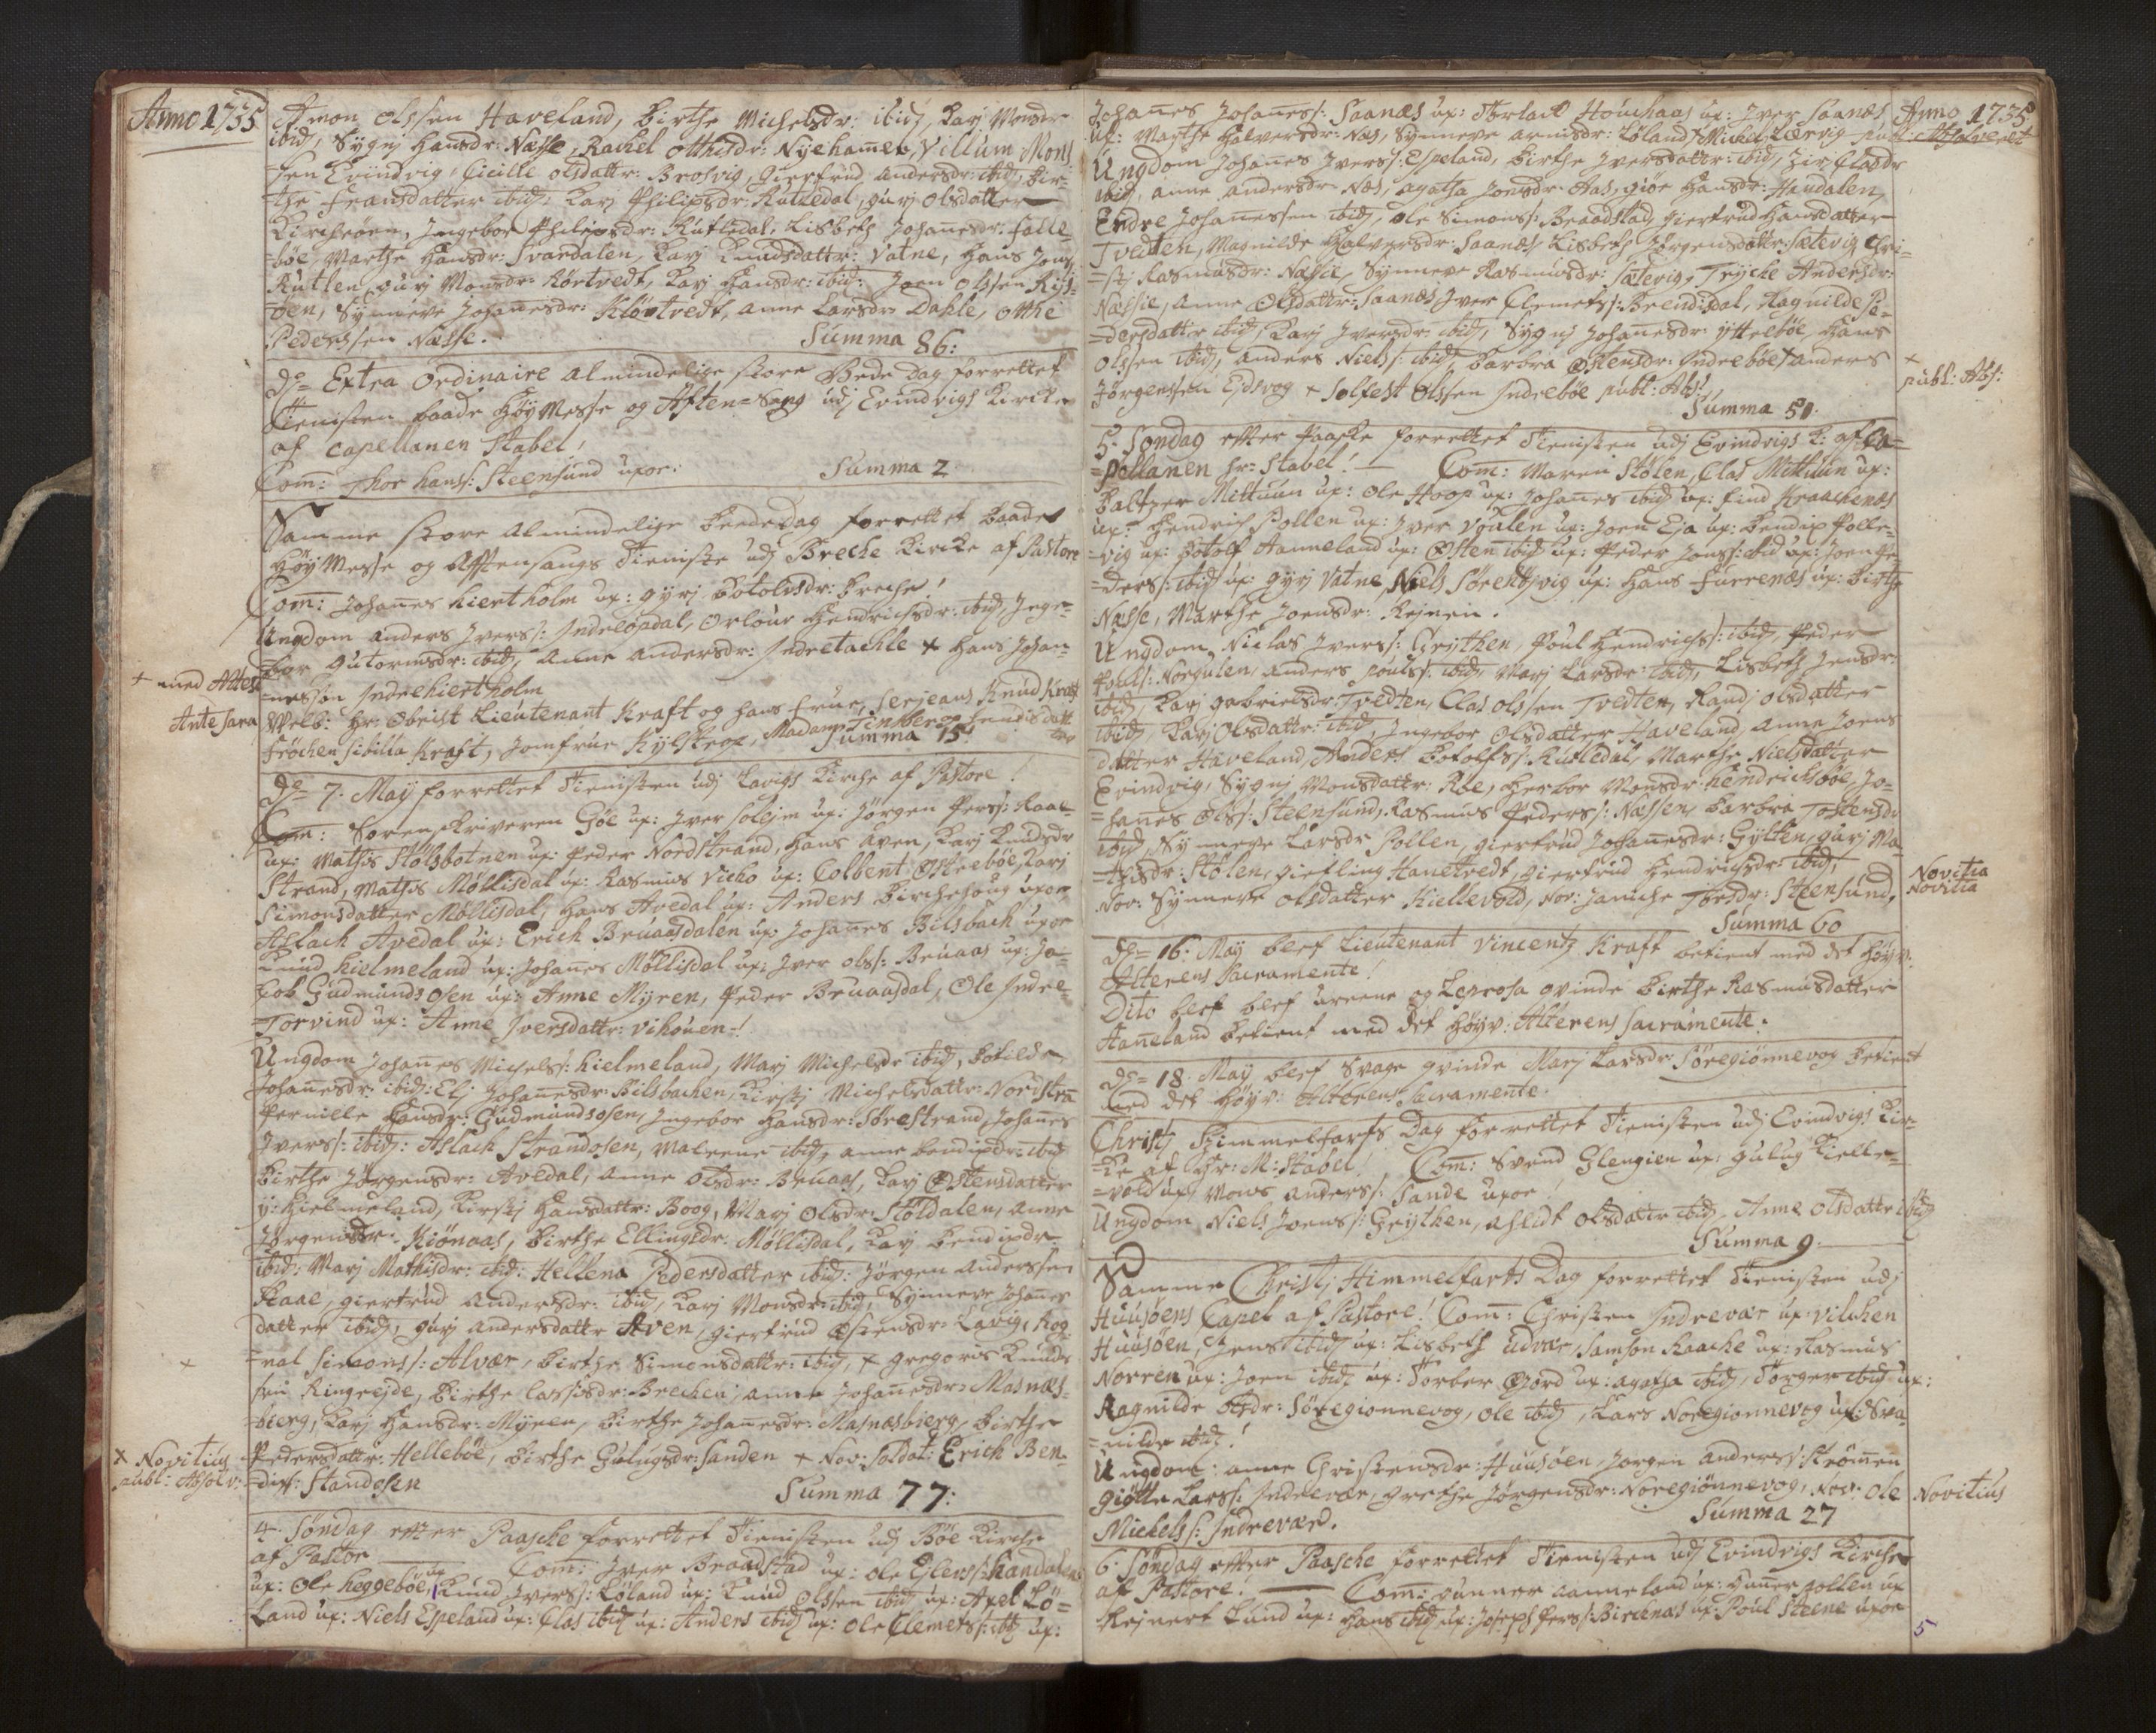 Anno 1735
Amon Olssen Haveland, Birthe Michelsdr: ibid, Karj Monsdr
ibid, Sygnj Hansdr: Næsse, Rachel Otthisdr: Nyehamer, Villum Mons
sen Evindvig, Cicille olsdattr: Brosvig, Giertrud Andersdr: ibid, Bir-
the Fransdatter ibid: Karj Philipsdr: Rutledal, gurj Olsdatter
Kircheøen, Ingebor Philipsdr: Rutledal, Lisbeth Johanesdr: Falle-
-bøe, Marthe Hansdr: Svardalen, Karj Knudsdattr: Vatne, Hans Jens
Rutlen, gurj Monsdr: Hørtvedt, Karj Hansdr: ibid: Joen Olssen Riss-
-øen, Synneve Johanesdr: Kløvtvedt, Anne Larsdr: Dahle, otthe
Pederssen Næsse. Summa 86:
Extra Ordinaire Almindelige store Bededag forrettet
Tienisten baade HøyMesse og Aften-Sang udj Evindvigs Kircke
af Capellanen Stabel!
Com: Thor hanss: Steensund uxor: Summa 2
Samme store Almindelige Beededag forrettet baade
HøyMesse og Afftensangs Tieniste udj Breche Kircke af Pastore
Com: Johanes hiertholm ux: gyrj Botolvsdr: Breche!
Ungdom anders Iverss: Indreløpdal, Orlour Hendrichsdr: ibid, Inge-
bor Gutormsdr: ibid, Anne Andersdr: Indretachle + Hans Johan-
+ med Alter
-nessen Indrehiertholm
Ante sara
Welb: Hr: Obrist Lieutenant Kraft og hans Frue, Serjeans Knud Kraft
Frøchen Sibilla Kraft, Jomfrue Kylstrop, Madam Finberg
Summa 15!
7. Maÿ forrettet Tienisten udj Lavigs Kirche af Pastore!
Com: Sorenskriveren Gøe ux: Iver solejm ux: Jørgen Perss: Raae
ux: Mathis Stølsbotnen ux: Peder Nordstrand, Hans Aven, Karj Knudsdr
Strand, Mathis Møllisdal ux: Rasmus Vicho ux: Colbent Østrebøe, Karj
Simonsdatter Møllisdal, Hans Avedal ux: Anders Birchehoug uxor
Aslach Avedal ux: Erich Bruaasdalen ux: Johanes Bilsbach uxor
Knud hielmeland ux: Johanes Møllisdal ux: Iver olss: Bruaas ux: Ja-
cob Gudmunds osen ux: Anne Myren, Peder Bruaasdal, Ole Indre-
Torvind ux: Anne Iversdattr: vihouen!
Ungdom Johanes Michelss: hielmeland, Marj Michelsdr ibid, Botilde
Johanesdr: ibid: Elj Johanesdr: Bilsbachen, Kirstj Michelsdattr: Nordstra
Pernille Hansdr: Gudmundsosen, Ingebor Hansdr: Sørestrand, Johanes
Iverss: ibid: Aslach Strandosen, Maleene ibid, anne bendixdr: ibid
Birthe Jørgensdr: Avedal, Anne olsdr: Bruaas, Karj Østensdatter
y: hielmeland, Kirstj Hansdattr: Boog, Marj Olsdr: Støldalen, Anne
Jørgensdr: Kiønaas, Birthe Ellingsdr: Møllisdal, Karj Bendixdr
ibid: Marj Mathisdr: ibid: Hellena Pedersdatter ibid: Jørgen Anderssen
Raae, giertrud Andersdr: ibid, Karj Monsdr: ibid, Synneve Johanes
datter ibid, gurj Andersdattr Aven, giertrud Østensdr: Lavig, Rog-
-nal Simonss: Alvær, Birthe Simonsdattr: ibid, + gregoris Knuds
+
sen Ringrejde, Birthe lassisdr: Brechen, anne Johanesdr: Masnæs-
-bierg, Karj Hansdr: Myren, Birthe Johanesdr: Masnæsbierg, Birthe
+ Novitius
Pedersdattr: Hellebøe, Birthe Gulugsdr: Sanden + Nov: Soldat: Erich Ben-
publ: Absolv:
-dixs: Standosen Summa 77:
4. Søndag effter Paasche forrettet Tienisten udj Bøe Kirche
af Pastor Com: Iver Braadstad ux: ole Elenss: Handalen
ux: Ole heggebøe, ux Knud Iverss: Løland ux: Knud Olssen ibid ux: Axel Lø-
Land ux: Niels Espeland ux: Clas ibid ux: Anders ibid ux: Ole Clemetss: ibid ux:
Johanes Johaness: Saanæs ux: Torlach Houchaas ux: Iver Saanæs
Anno 1735
ux: Marthe Halversdr: Næs, Synneve arnisdr: Løland + Michel Lervig publ: Absolveret
Ungdom Johanes Iverss: Espeland, Birthe Iversdattr: ibid, Zirj Clasdr
ibid, anne andersdr: Næs, agatha Jonsdr: Aas, giøe Hansdr: Handalen,
Endre Johanessen ibid, ole Simonss: Braadstad, giertrud Hansdatter
Tvedten, Magnilde Halversdr: Saanæs, Lisbeth Jørgensdattr: Sætevig Chri-
-stj Rasmusdr: Næsse, Synneve Rasmusdr: Sætevig, Tryche Andersdr:
Næssie, Anne Olsdattr: Saanæs Iver Clemetss: Brendisdal, Ragnilde Pe-
-dersdatter ibid, Karj Iversdr: ibid, Sygnj Johanesdr: yttrebøe, Hans
Olssen ibid, anders Nielss: ibid, Barbra Østensdr: Indrebøe + anders
+
Jørgenssen Eidsvog + Solfest Olssen Indrebøe publ: Abs:
publ: Abs:
Summa 51.
5. Søndag effter Paaske forrettet Tienisten udj Evindvigs K: af Ca-
-pellanen hr: Stabel! — Com: Maren Stølen, Clas Mittuun ux:
Baltzer Mittuun ux: Ole Hoop ux: Johanes ibid ux: find Kraachenæs
ux: Hendrich Pollen ux: Iver Vøalen ux: Joen Eja ux: Bendix Polle-
-vig ux: Botolf Hanneland ux: Østen ibid ux: Peder Jonss: ibid ux: Joen Pe-
-derss: ibid ux: gyrj Vatne, Niels Sørentzvig ux: Hans Furrenæs ux: Birthe
Næsse, Marthe Joensdr: Rejnein.
Ungdom Niclas Iverss: Grythen, Poul Hendrichss: ibid, Peder
Pouls: Norgulen, Anders pouls: ibid, Marj Larsdr: ibid, Lisbeth Jensdr:
ibid, Karj gabrielsdr: Tvedten, Clas olssen Tvedten, Randj olsdatter
ibid, Karj Olsdattr: ibid, Ingebor Olsdatter Haveland, Anne Joens
datter Haveland, Anders Botolfss: Rutledal, Marthe Nielsdatter
Evindvig, Sygnj Monsdattr: Røe, Herbor Monsdr: hendrichsbøe Jo-
-hanes Olss: Steensund, Rasmus Pederss: Næssen, Barbra Tostensdr
ibid, Synneve Larsdr: Pollen, giertrud Johanesdr: Gylten, gurj Ma-
-thisdr: Stølen, giefling Hanetvedt, giertrud Hendrichsdr: ibid,
Novitia
Nov: Synneve olsdatter Kiellevold, Nov: Janiche Torsdr: Steensund,
Novitia
Summa 60
16: Maÿ blef Lieutenant Vincentz Kraft betient med det Høyv:
Alterens Sacramente!
Dito blef blef ureene og Leprosa qvinde Birthe Rasmusdatter
Hanneland betient med det Høyv: Alterens Sacramente.
18. Maÿ blef Svage qvinde Marj Larsdr: Søregiønnevog betient
med det Høyv: Alterens Sacramente.
Christj Himmelfarts Dag forrettet Tienisten udj Evindvigs Kir-
-ke af Hr: M: Stabel! Com: Svend Glengien ux: Gulug Kielle-
-vold ux: Mons anderss: Sande uxor!
Ungdom Niels Joenss: Grythen, aslidt olsdattr ibid, Anne olsdattr ibid
Summa 9.
Samme Christj Himmelfarts Dag forrettet Tienisten udj
Huusøens Capel af Pastore! Com: Christen Indrevær ux: Vilchen
Huusøen, Jens ibid ux: Lisbeth udvær, Samson Raache ux: Rasmus
Norren ux: Joen ibid ux: Torber Giord ux: agatha ibid, Torger ibid ux:
Ragnilde Olsdr: Søregionnevog, Ole ibid, Lars Noregionnevog ux: Sva-
-nilde ibid!
Ungdom: anne Christensdr: Huusøen, Jorgen anderss: Strømen
giøtte Larss: Indrevær, grethe Jørgensdr: Noregiønnevog, Nov: Ole
Novitius
Michelss: Indreværd. Summa 27
6 Søndag effter Paasche forrettet Tienisten udj Evindvigs Kirche
af Pastore! — Com: Gunner Hanneland ux: Hanner Pollen ux
Rejnert Lund ux: Hans ibid ux: Joseph Perss: Birchenæs ux: Poul Steene uxor
5